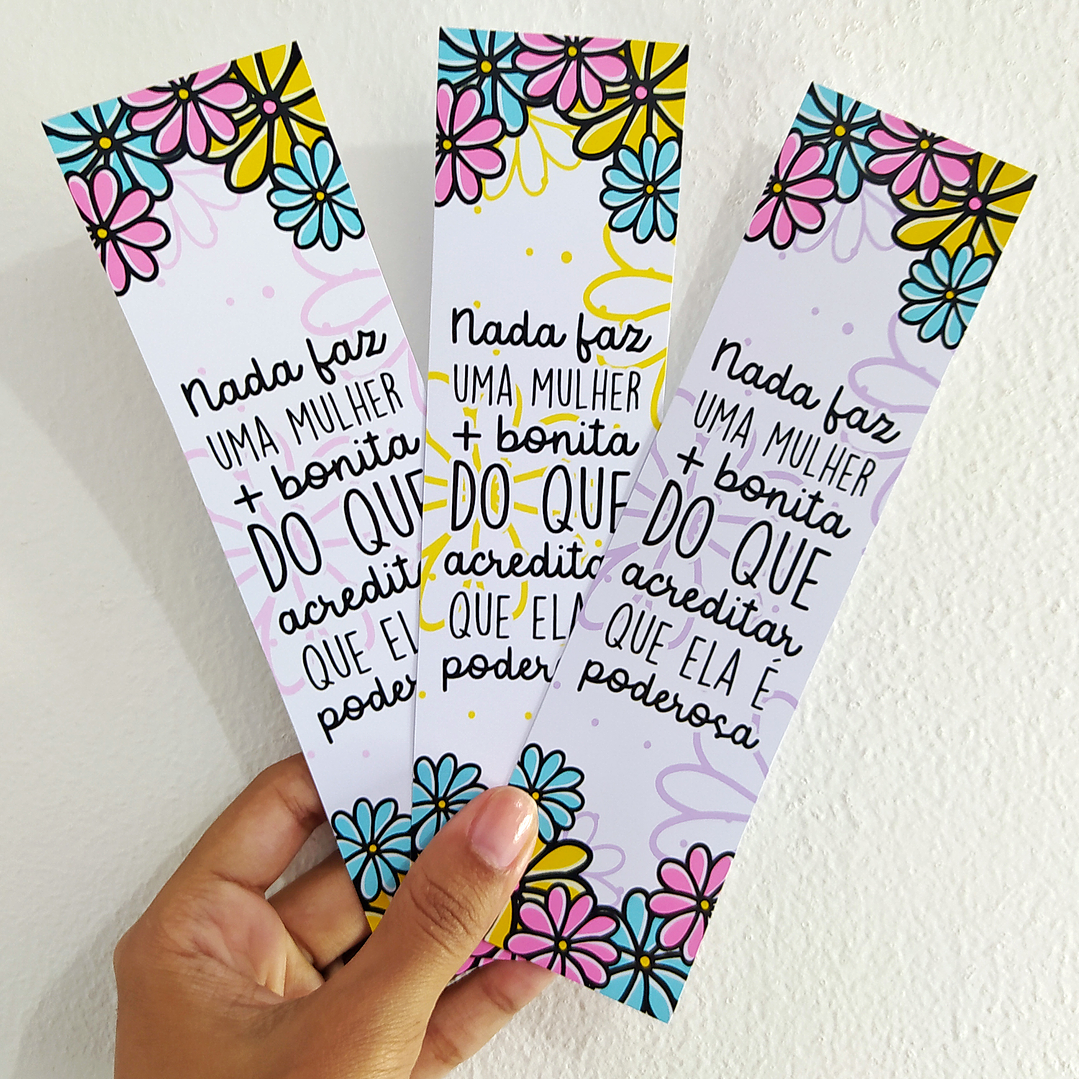 Nada faz
UMA MULHER
+ bonita
DO QUE
acredit
QUE EL
poder
Nada faz
UMA MULHER
+ bonita
DO QUE
acredita
QUE ELA
podero
Nada faz
UMA MULHER
+ bonita
DO QUE
acreditar
QUE ELA É
poderosa